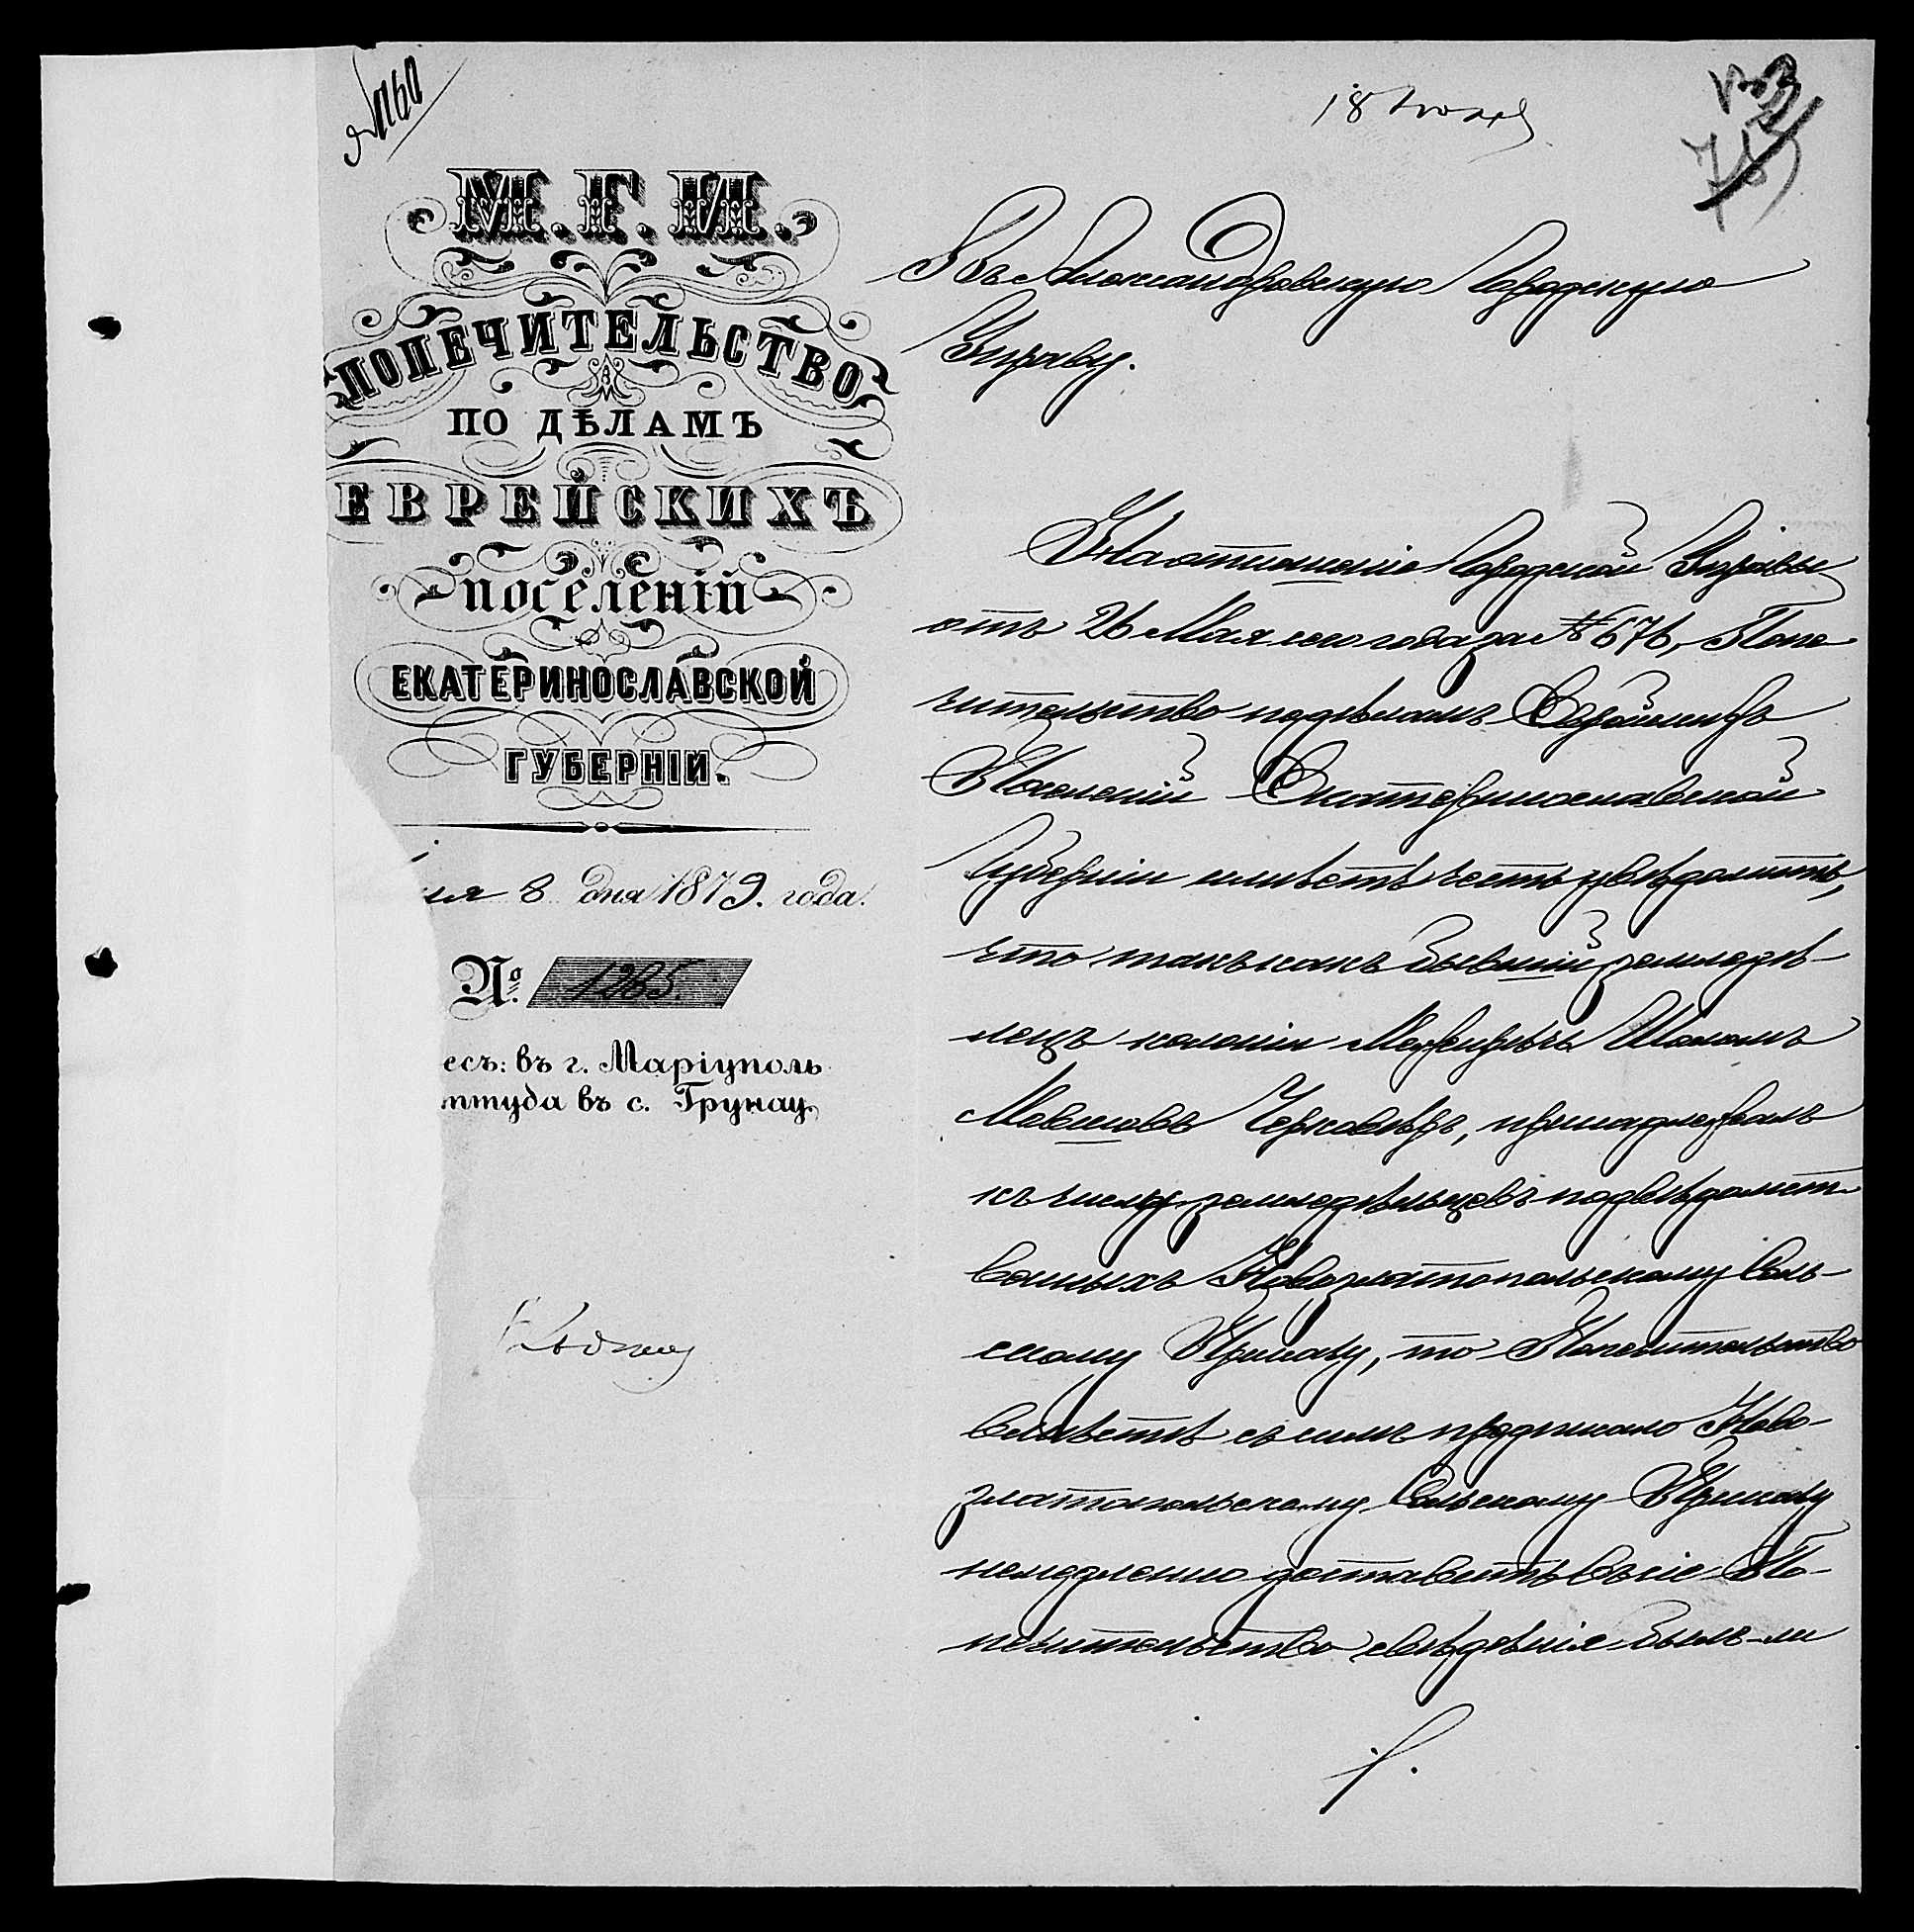 № 1160
18 Июня
М. Г. И.
ПОПЕЧИТЕЛЬСТВО
ПО ДѢЛАМЪ
ЕВРЕЙСКИХЪ
поселеній
ЕКАТЕРИНОСЛАВСКОЙ
ГУБЕРНІИ.
ня 8 дня 1879. года.
№ 1285.
есъ: въ г. Маріуполь
птуда въ с. Грунау.
Въ Александровскую Городскую
Управу.
На отношеніе Городской Управы
отъ 26 Мая сего года за № 676, Попе
чительство по дѣламъ Еврейскихъ
Поселеній Екатеринославской
Губерніи имѣетъ честь увѣдомить,
что такъ какъ бывшій земледѣ-
лецъ колоніи Межирѣчь Шоломъ
Мовшовъ Черковѣръ, принадлежалъ
къ числу земледѣльцевъ подвѣдомст
венныхъ Новозлатопольскому Сель-
скому Приказу, то Попечительство
вмѣстѣ съ симъ предписало Ново-
златопольскому Сельскому Приказу
немедленно доставить въ сіе По-
печительство свѣдѣнія былъ-ли